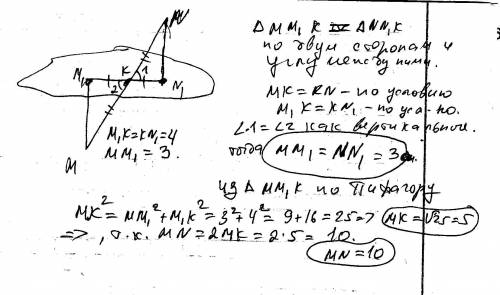 N
M₁ K 1 N₁
2
M
M₁K = KN₁ = 4
MM₁ = 3.
Δ MM₁K = Δ NN₁K
по двум сторонам и
углу между ними.
MK = KN - по условию
M₁K = KN₁ - по усл-ю.
∠1 = ∠2 как вертикальные.
тогда MM₁ = NN₁ = 3
из Δ MM₁K по Пифагору
MK² = MM₁² + M₁K² = 3² + 4² = 9 + 16 = 25 => MK = √25 = 5
=> , т.к. MN = 2MK = 2·5 = 10.
MN = 10